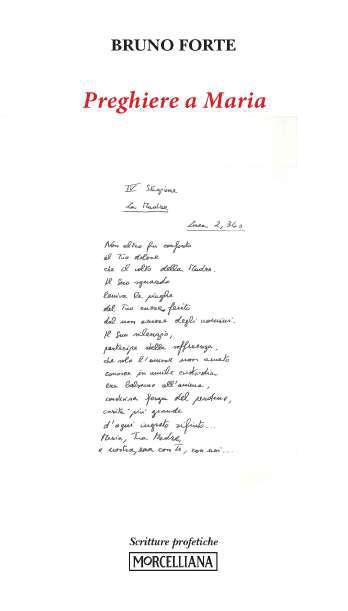 BRUNO FORTE
Preghiere a Maria
IV Stazione
La Madre
Luca 2,34s
Non altro fu conforto
al Tuo dolore
che il volto della Madre.
Il Suo sguardo
leniva le piaghe
del Tuo cuore, ferito
dal non amore degli uomini.
Il Suo silenzio,
partecipe della sofferenza
che solo l'amore non amato
conosce in umile custodia
era balsamo all'anima,
condivisa forza del perdono,
carità più grande
d'ogni ingrato rifiuto...
Maria, Tua Madre,
e nostra, era con Te, con noi...
Scritture profetiche
MORCELLIANA